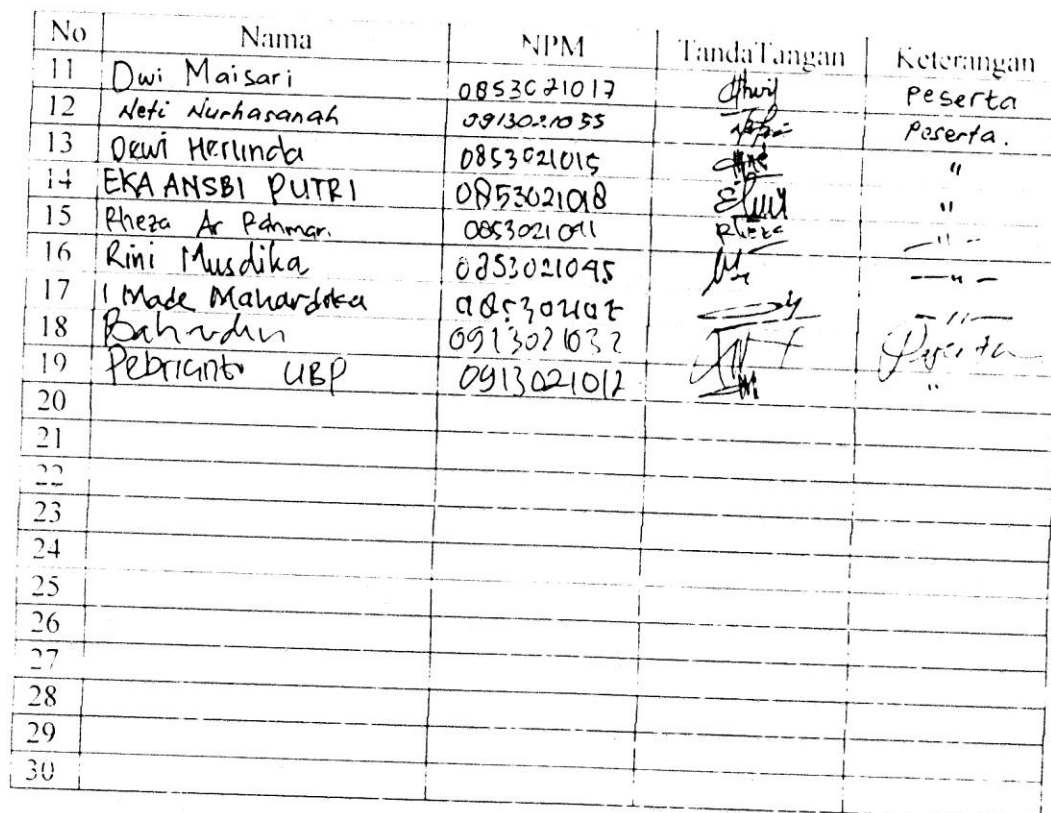 No Nama NPM TandaTangan Keterangan
11 Dwi Maisari 0853021017 Peserta
12 Neti Nurhasanah 0913021055 Peserta.
13 Dewi Herlinda 0853021015 "
14 EKA ANSBI PUTRI 0853021018 "
15 Rheza Ar 0853021041 Rheza —"—
16 Rini Musdika 0853021045 —"—
17 I Made Mahardika —"—
18 0913021032 Peserta
19 Pebrianto UBP 0913021012 "
20
21
22
23
24
25
26
27
28
29
30